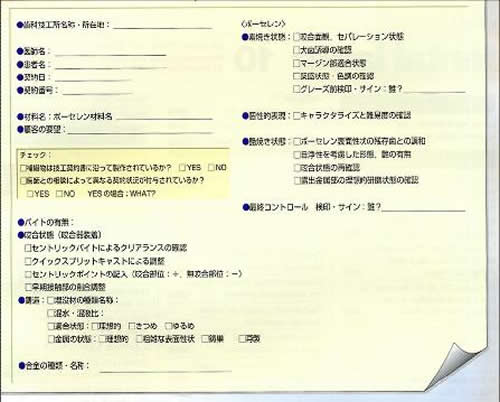 ●歯科技工所名称・所在地:
●医師名:
●患者名:
●契約日:
●契約番号:
●材料名:ポーセレン材料名
●顧客の要望:
チェック:
□補綴物は技工契約書に沿って製作されているか? □YES □NO
□医師との相談によって異なる契約状況が付与されているか?
□YES □NO YESの場合:WHAT?
●バイトの有無:
●咬合状態(咬合器装着)
□セントリックバイトによるクリアランスの確認
□クイックスプリットキャストによる調整
□セントリックポイントの記入(咬合部位:+、無咬合部位:−)
□早期接触部の削合調整
●鋳造:□埋没材の種類名称:
□混水・混液比:
□適合状態:□理想的 □きつめ □ゆるめ
□金属の状態:□理想的 □粗雑な表面性状 □鋳巣 □再製
●合金の種類・名称:
〈ポーセレン〉
●素焼き状態:□咬合面観、セパレーション状態
□犬歯誘導の確認
□マージン部適合状態
□形態状態・色調の確認
□グレーズ前検印・サイン:誰?
●個性的表現:□キャラクタライズと難易度の確認
●艶焼き状態:□ポーセレン表面性状の残存歯との調和
□自浄性を考慮した形態、艶の有無
□咬合状態の再確認
□露出金属部の理想的研磨状態の確認
●最終コントロール 検印・サイン:誰?